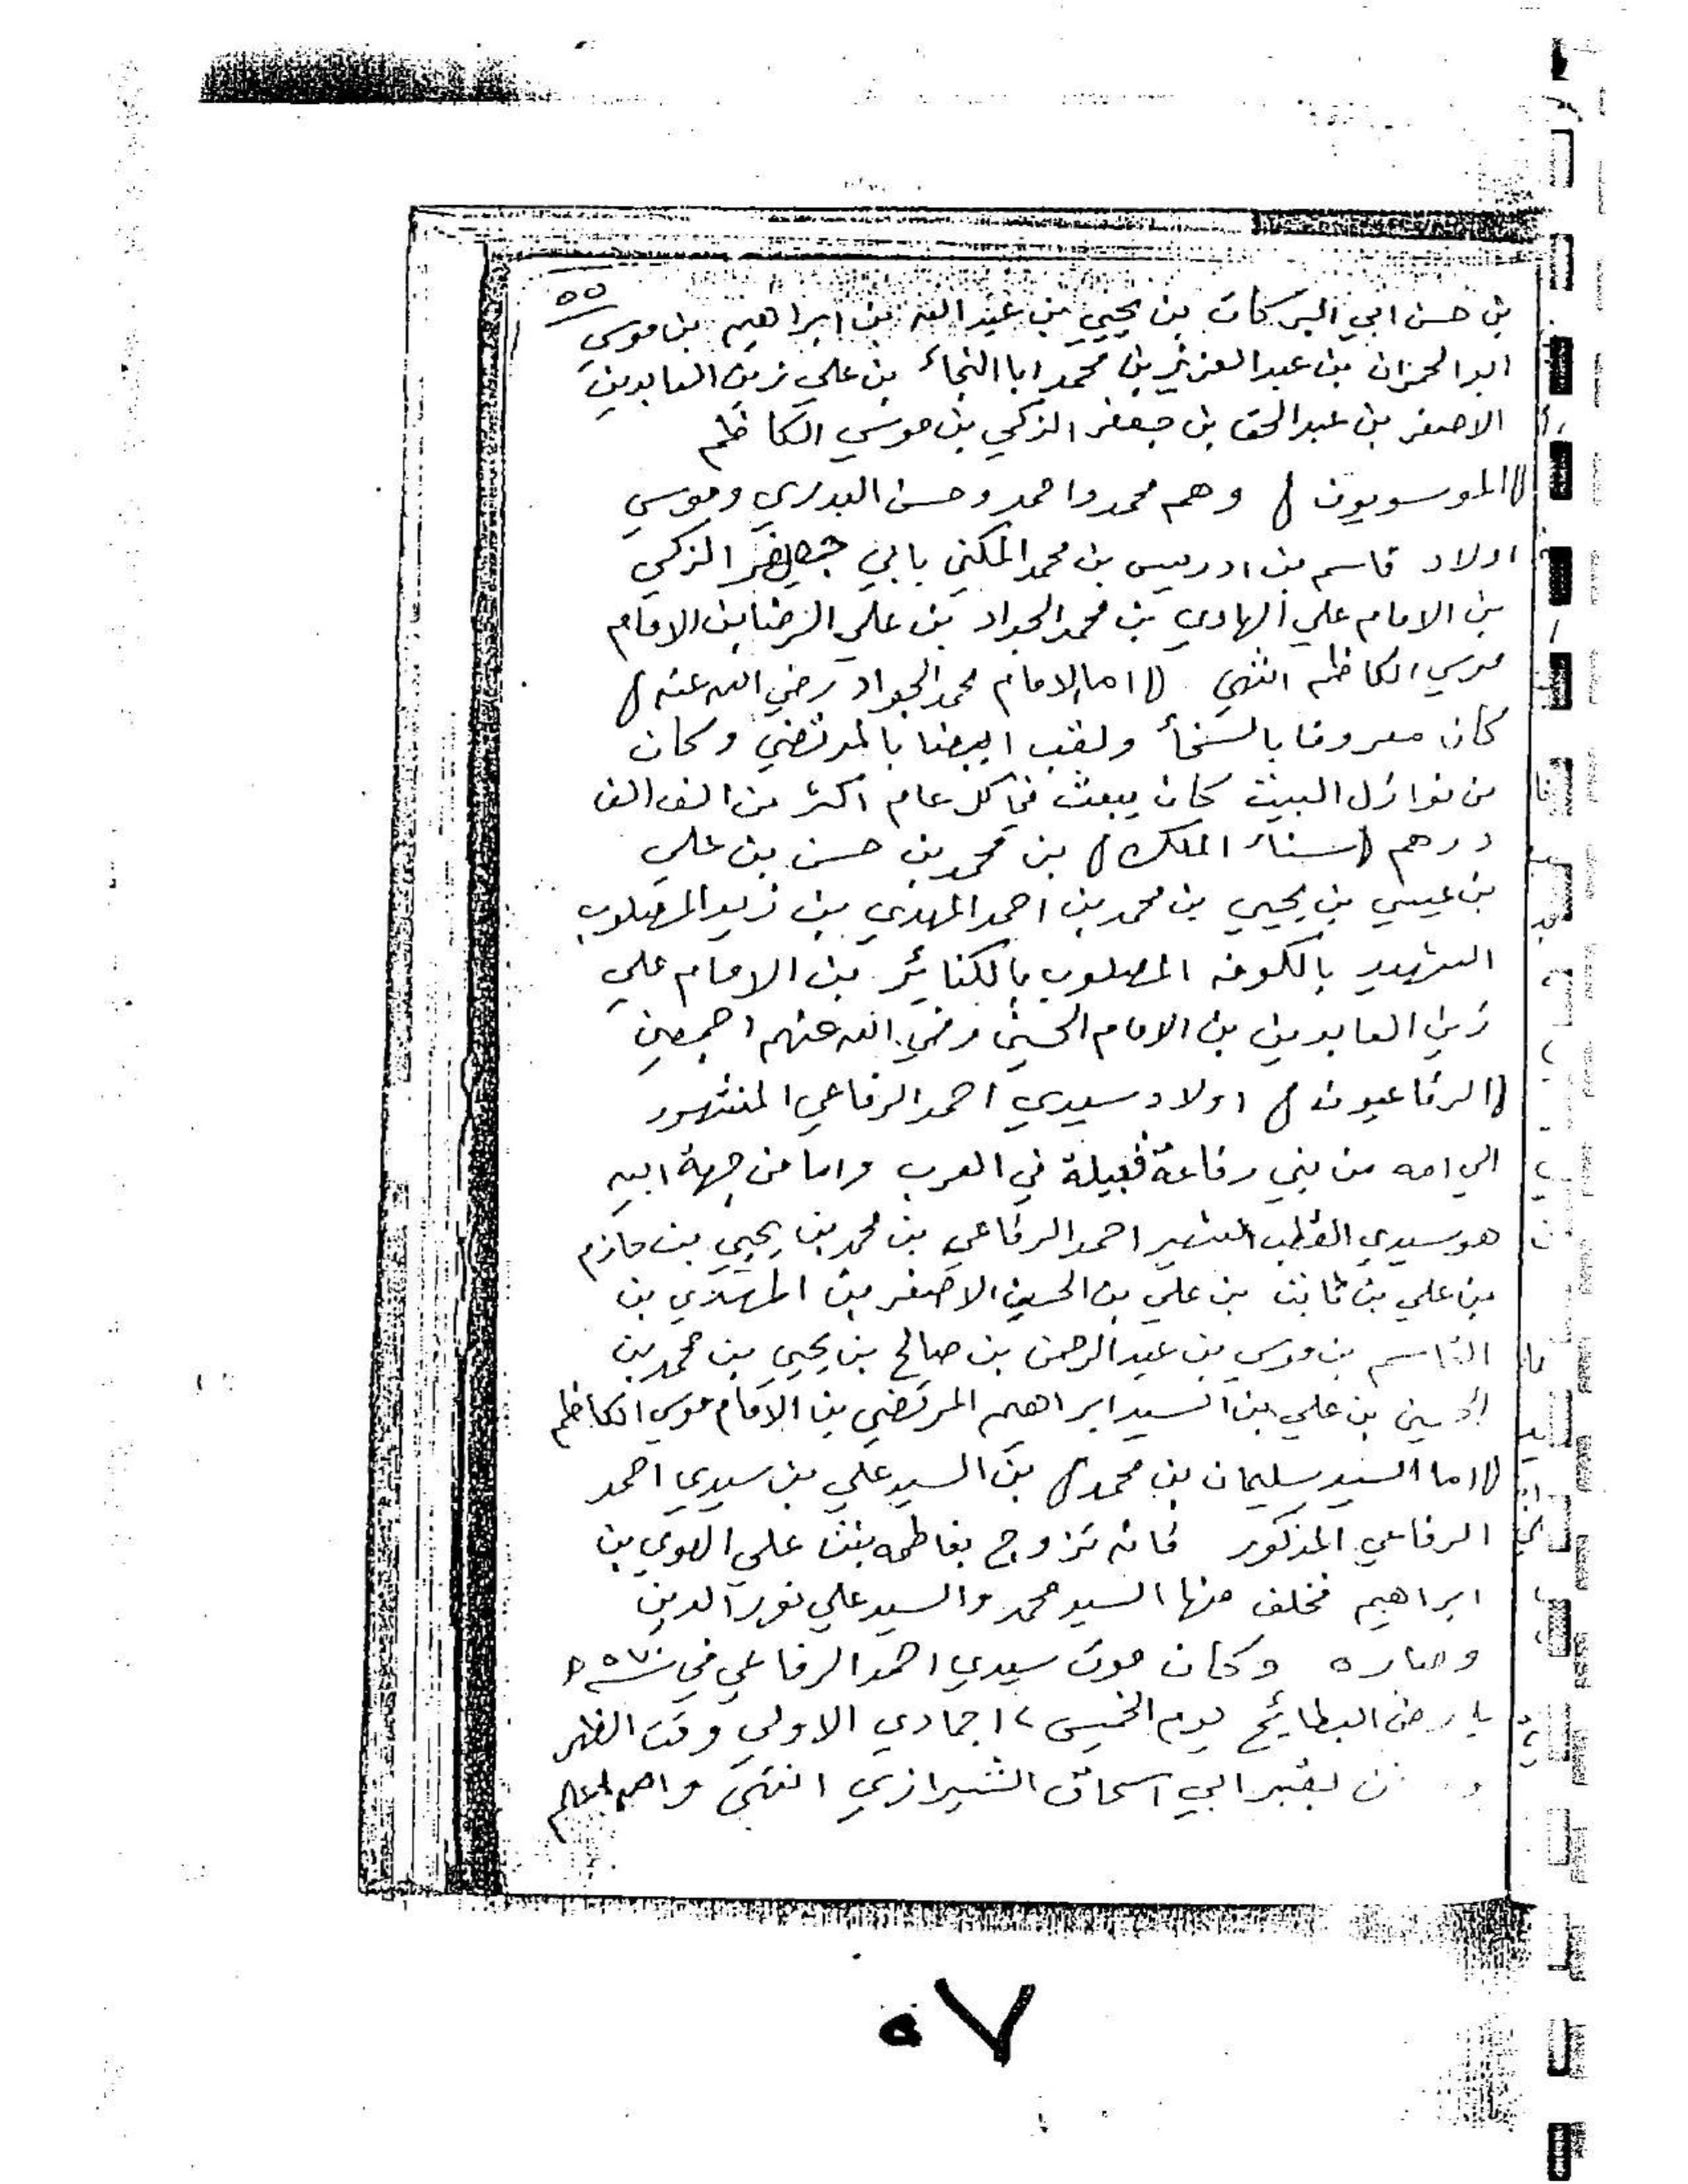 ٥٥
بن حسن ابي البركات بن يحيي بن عبد الله بن ابراهيم بن موسي
ابو الحمزات بن عبد العزيز بن محمد ابا النجاء بن علي زين العابدين
الاصغر بن عبد الحق بن جعفر الزكي بن موسي الكاظم
(الموسويون) وهم محمد واحمد وحسن البدري وموسي
اولاد قاسم بن ادريس بن محمد المكني بابي الزكي
بن الامام علي الهادي بن محمد الجواد بن علي الرضا بن الامام
موسي الكاظم انتهي (اما الامام محمد الجواد رضي الله عنه)
كان معروفا بالسخاء ولقب ايضا بالمرتضي وكان
من نوازل البيت كان يبعث في كل عام اكثر من الف الف
درهم (سناء الملك) بن محمد بن حسن بن علي
بن عيسي بن يحيي بن محمد بن احمد المهدي بن زيد المصلوب
الشهيد بالكوفه المصلوب بالكنائز بن الامام علي
زين العابدين بن الامام الحسين رضي الله عنهم اجمعين
(الرفاعيون) اولاد سيدي احمد الرفاعي المنشهور
الي امه من بني رفاعة قبيلة في العرب واما من جهة ابيه
هو سيدي القطب الشهير احمد الرفاعي بن محمد بن يحيي بن حازم
بن علي بن ثابت بن علي بن الحسين الاصغر بن المهدي بن
القاسم بن موسي بن عبد الرحمن بن صالح بن يحيي بن محمد بن
الحسين بن علي بن السيد ابراهيم المرتضي بن الامام موسي الكاظم
(اما السيد سليمان بن محمد) بن السيد علي بن سيدي احمد
الرفاعي المذكور فانه تزوج بفاطمه بنت علي الهوي بن
ابراهيم فخلف منها السيد محمد والسيد علي نور الدين
وصاره وكان موت سيدي احمد الرفاعي في سنة ٥٧٠
بارض البطائح يوم الخميس ١٢ جمادي الاولي وقت الظهر
بقبر ابي اسحاق الشيرازي انتهي والله اعلم
٥٧